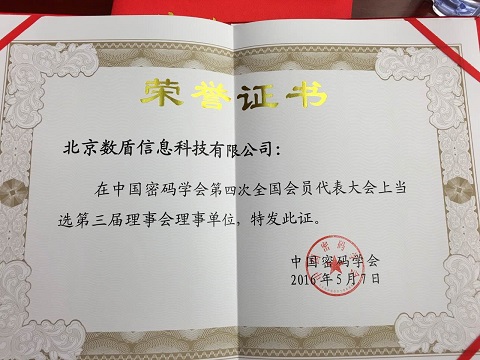 荣誉证书
北京数盾信息科技有限公司：
在中国密码学会第四次全国会员代表大会上当
选第三届理事会理事单位，特发此证。
中国密码学会
2016年5月7日